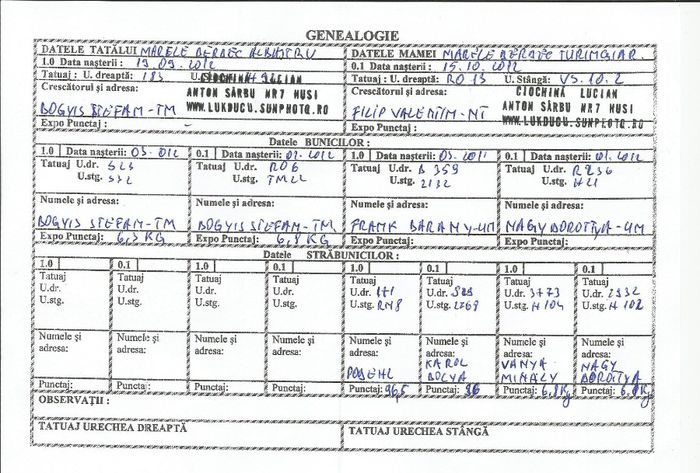 GENEALOGIE
DATELE TATĂLUI MARELE BERBEC ALBASTRU
1.0 Data nașterii : 19.09.2012
Tatuaj : U. dreaptă: 183
CIOCHINA LUCIAN
Crescătorul și adresa:
ANTON SÂRBU NR7 HUSI
BOGYIS STEFAM-TM
WWW.LUKDUCU.SUNPHOTO.RO
Expo Punctaj :
DATELE MAMEI MARELE BERBEC TURINGIAR
0.1 Data nașterii : 15.10.2012
Tatuaj : U. dreaptă: RO 13 U. Stângă: V5.10.2
Crescătorul și adresa:
CIOCHINA LUCIAN
ANTON SÂRBU NR7 HUSI
FILIP VALENTIM-NT
WWW.LUKDUCU.SUNPHOTO.RO
Expo Punctaj :
Datele BUNICILOR :
1.0 Data nașterii: 03.2012 0.1 Data nașterii: 02.2012 1.0 Data nașterii: 03.2011 0.1 Data nașterii: 01.2012
Tatuaj U.dr. S23 Tatuaj U.dr. RO6 Tatuaj U.dr. B 359 Tatuaj U.dr. R236
U.stg. 532 U.stg. TM22 U.stg. 2132 U.stg. H21
Numele și adresa: Numele și adresa: Numele și adresa: Numele și adresa:
BOGYIS STEFAM-TM BOGYIS STEFAM-TM FRAMK BARAMY-UM NAGY DOROTTYA-UM
Expo Punctaj: 6,5 KG Expo Punctaj: 6,8 KG Expo Punctaj: Expo Punctaj:
Datele STRĂBUNICILOR :
1.0 0.1 1.0 0.1 1.0 0.1 1.0 0.1
Tatuaj Tatuaj Tatuaj Tatuaj Tatuaj Tatuaj Tatuaj Tatuaj
U.dr. U.dr. U.dr. U.dr. U.dr. U.dr. U.dr. 3773 U.dr. 2932
U.stg. U.stg. U.stg. U.stg. U.stg. RM8 U.stg. 2268 U.stg. H 104 U.stg. H 102
Numele și adresa: Numele și adresa: Numele și adresa: Numele și adresa: Numele și adresa: Numele și adresa: Numele și adresa: Numele și adresa:
PODEHL KAROL BOLYA VANYA MIHALY NAGY DOROTTYA
Punctaj: Punctaj: Punctaj: Punctaj: Punctaj: 96,5 Punctaj: 96 Punctaj: 6,8 Kg Punctaj: 6,8 Kg
OBSERVAȚII :
TATUAJ URECHEA DREAPTĂ TATUAJ URECHEA STÂNGĂ